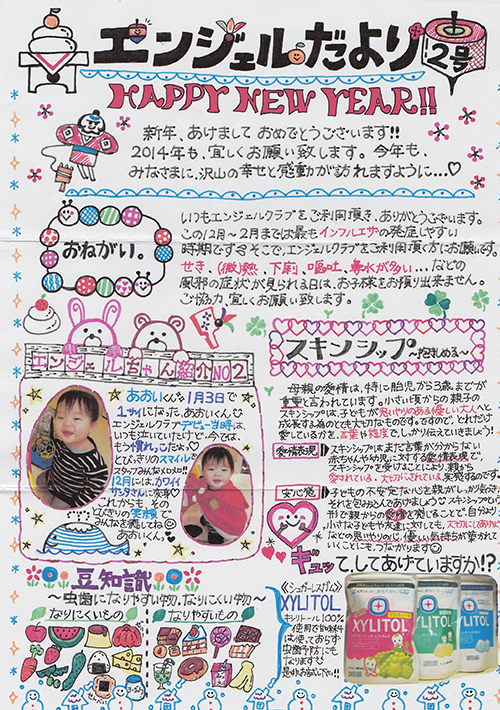 エンジェルだより
2号
HAPPY NEW YEAR!!
新年、あけまして おめでとうございます!!
2014年も、宜しくお願い致します。今年も、
みなさまに、沢山の幸せと感動が訪れますように…♡
おねがい。
いつもエンジェルクラブをご利用頂き、ありがとうございます。
この12月〜2月までは最もインフルエンザの発症しやすい
時期です。そこで、エンジェルクラブをご利用頂く方にお願いです。
せき、(微)熱、下痢、嘔吐、鼻水が多い…などの
風邪の症状が見られる日は、お子様をお預り出来ません。
ご協力、宜しくお願い致します。
エンジェルちゃん紹介NO2
あおいくん 1月3日で
1才になった、あおいくん
エンジェルクラブデビュー当時は、
いつも泣いていたけど、今では、
もう慣れっこだね
とびっきりのスマイルに
スタッフみんなメロメロ!!
12月には、カワイイ
サンタさんに変身♡
これからも、その
とびきりの笑顔で
みんなを癒してね
あおいくん。
スキンシップ
〜抱きしめる〜
母親の愛情は、特に胎児から3歳までが
重要と言われています。小さい頃からの親子の
スキンシップは、子どもが思いやりのある優しい大人へと
成長する為のとても大切なものです。ですので、どれだけ
愛しているかを、言葉や態度でしっかり伝えていきましょう!
愛情表現
スキンシップはまだ言葉が分からない
赤ちゃんや幼児に対する愛情表現です。
スキンシップを受けることにより、親から
愛されている、大切にされていると実感するのです。
安心感
子どもの不安定な心を親がしっかり
それを包みこんであげましょう
ひと親からの愛情を感じていることで、自分より
小さな子どもや友達に対しても、大切にしてあげる
などの思いやりの心、優しい気持ちが養われて
いくことにもつながります
ギュッて、してあげていますか!?
豆知識
〜虫歯になりやすい物。なりにくい物〜
なりにくいもの
なりやすいもの
《シュガーレスガム》
XYLITOL
キシリトール100%
使用で甘味料
は使っておらず
虫歯予防にも
なります
是非お試し下さい!!
XYLITOL
XYLITOL
XYLITOL